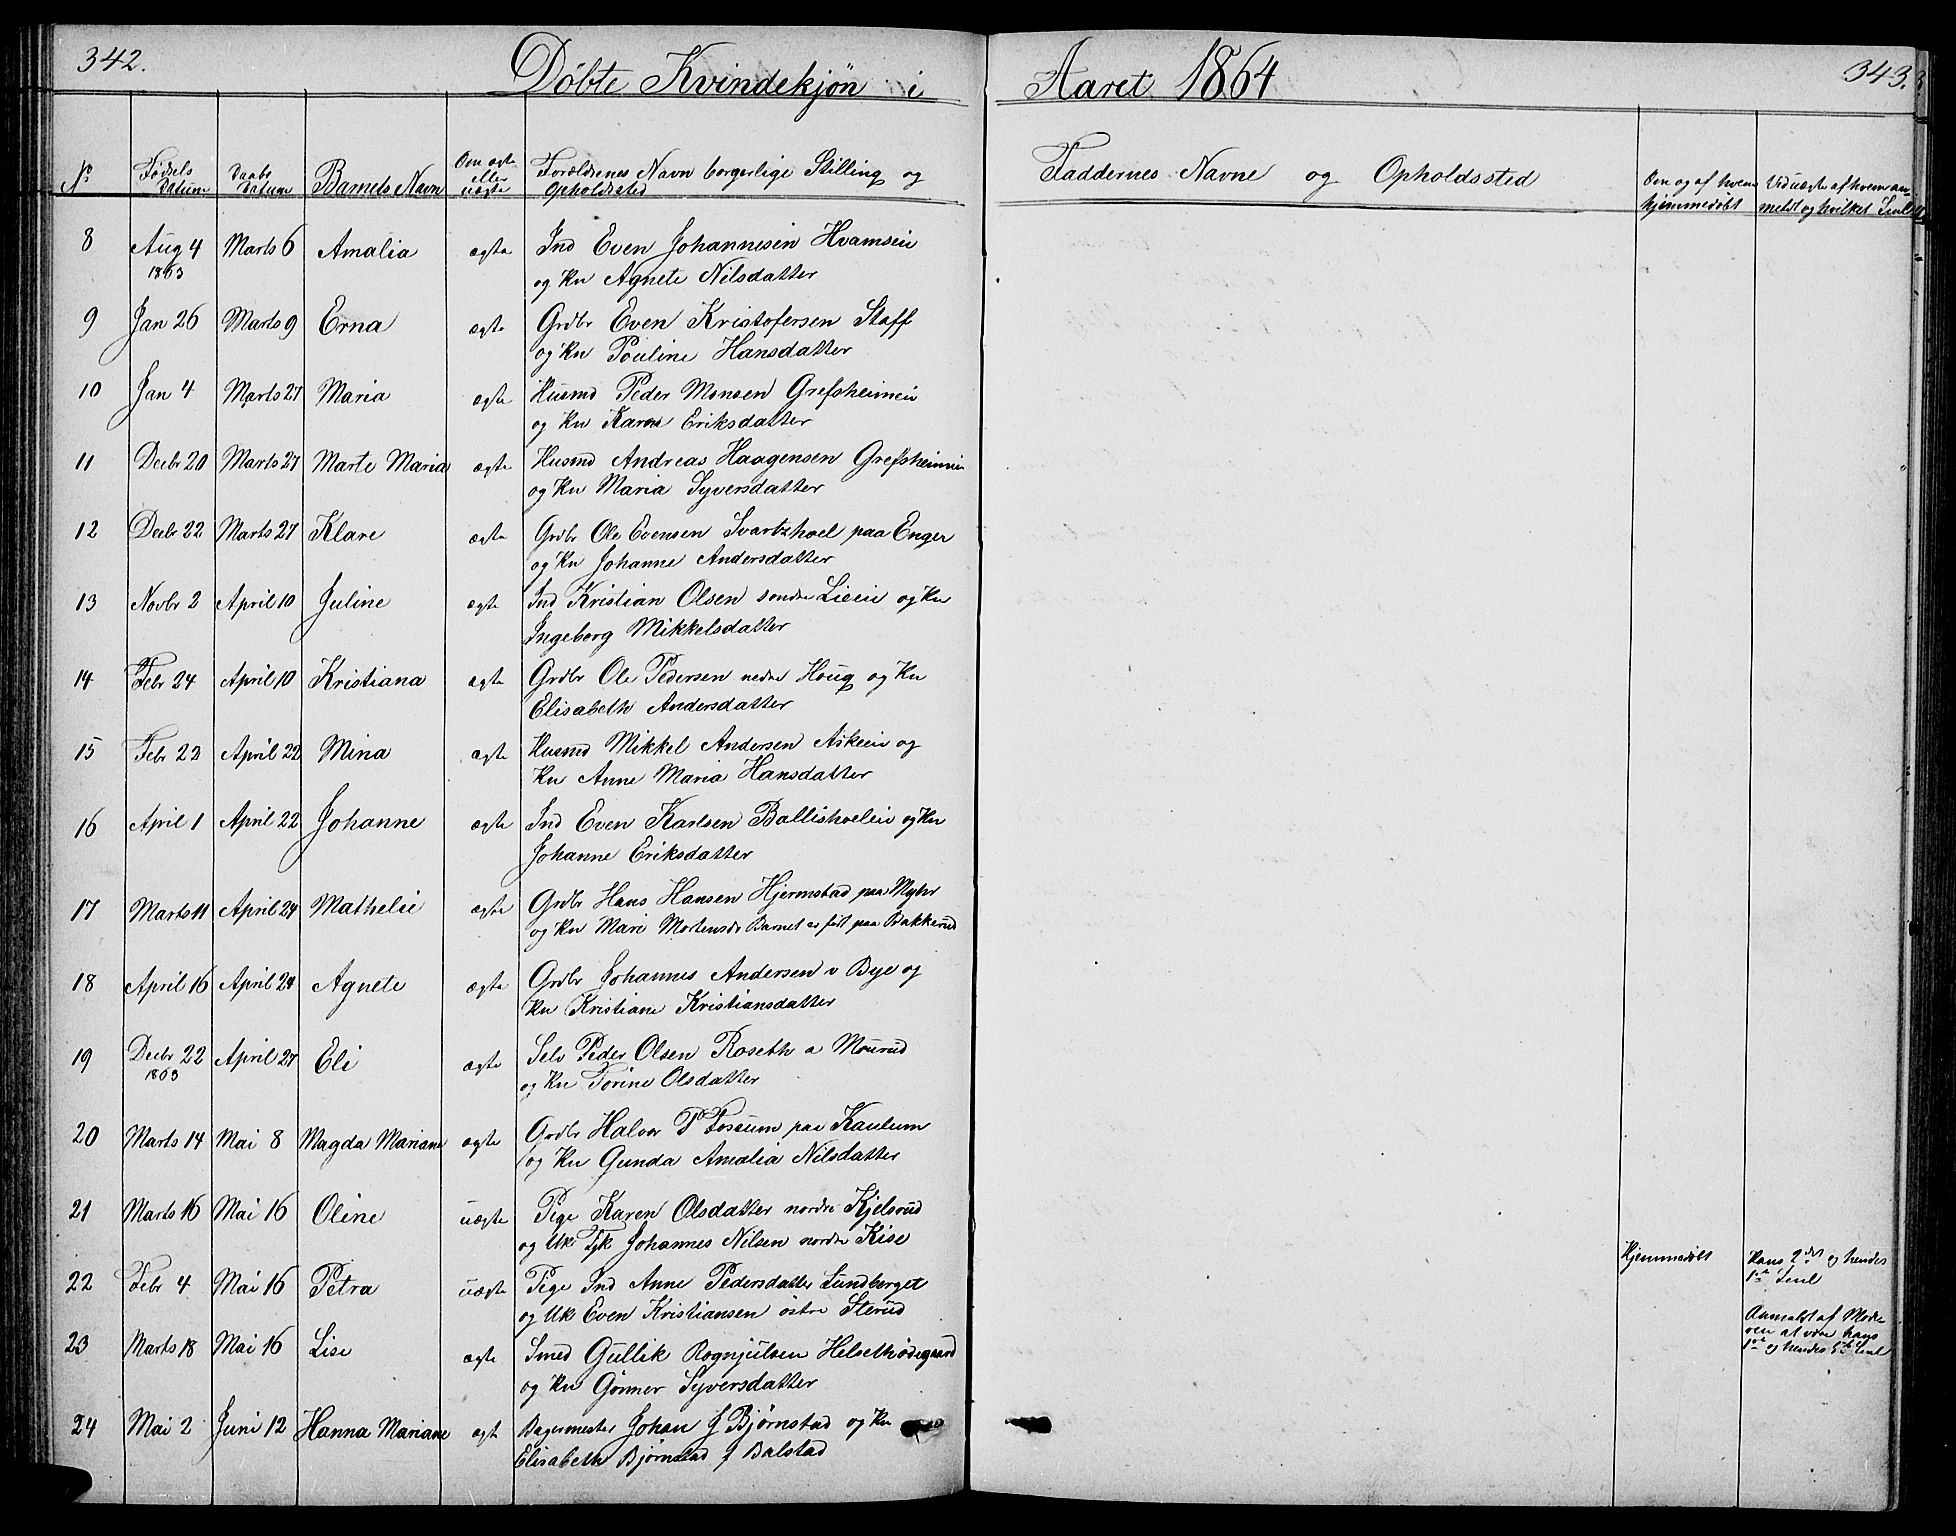 342.
Døbte Kvindekjøn i
Aaret 1864
343.
No
Fødsels Datum
Daabs Datum
Barnets Navn
Om ægte eller uægte
Forældrenes Navn borgerlige Stilling og Opholdsted
Faddernes Navne og Opholdssted
Om og af hvem hjemmedøbt
Ved uægte af hvem anmeldt og hvilket Leul
8 Aug 4 Marts 6 Amalia ægte Ind Even Johannesen Hvamseie
1863 og Kv Agnete Nilsdatter
9 Jan 26 Marts 9 Erna ægte Grdbr Even Kristofersen Staff
og Kv Pouline Hansdatter
10 Jan 4 Marts 27 Maria ægte Husmd Peder Monsen Grefsheimeie
og Kv Karen Eriksdatter
11 Decbr 20 Marts 27 Marte Maria ægte Husmd Andreas Haagensen Grefsheimeie
og Kv Maria Syversdatter
12 Decbr 22 Marts 27 Klare ægte Grdbr Ole Evensen Svartshoel paa Enger
og Kv Johanne Andersdatter
13 Novbr 2 April 10 Juline ægte Ind Kristian Olsen søndre Lieeie og Kv
Ingeborg Mikkelsdatter
14 Febr 24 April 10 Kristiana ægte Grdbr Ole Pedersen nedre Houg og Kv
Elisabeth Andersdatter
15 Febr 22 April 22 Mina ægte Husmd Mikkel Andersen Askeie og
Kv Anne Maria Hansdatter
16 April 1 April 22 Johanne ægte Ind Even Karlsen Ballisholeie og Kv
Johanne Eriksdatter
17 Marts 11 April 24 Mathelie ægte Grdbr Hans Hansen Hjermstad paa Myhr
og Kv Mari Mortensdr Barnet er født paa Bakkerud
18 April 16 April 24 Agnete ægte Grdbr Johannes Andersen v Bye og
Kv Kristiane Kristiansdatter
19 Decbr 22 April 24 Eli ægte Selv Peder Olsen Roseth a Mourud
1863 og Kv Torine Olsdatter
20 Marts 14 Mai 8 Magda Mariane ægte Grdbr Halvor P Fossum paa Kaulum
og Kv Gunda Amalia Nilsdatter
21 Marts 16 Mai 16 Oline uægte Pige Karen Olsdatter nordre Kjelsrud
og Uk Tjk Johannes Nilsen nordre Kise
22 Febr 4 Mai 16 Petra uægte Pige Ind Anne Pedersdatter Lundberget Hjemmedøbt Hans 2det og hendes
og Uk Even Kristiansen østre Sterud 1ste Leul
23 Marts 18 Mai 16 Lise ægte Smed Gullik Rognjulsen Helsethødegaard Anmeldt af Moderen at være hans
og Kv Gønner Syversdatter 1ste og hendes 5te Leul
24 Mai 2 Juni 12 Hanna Mariane ægt Bagermester Johan J Bjørnstad og Kv
Elisabeth Bjørnstad f Balstad